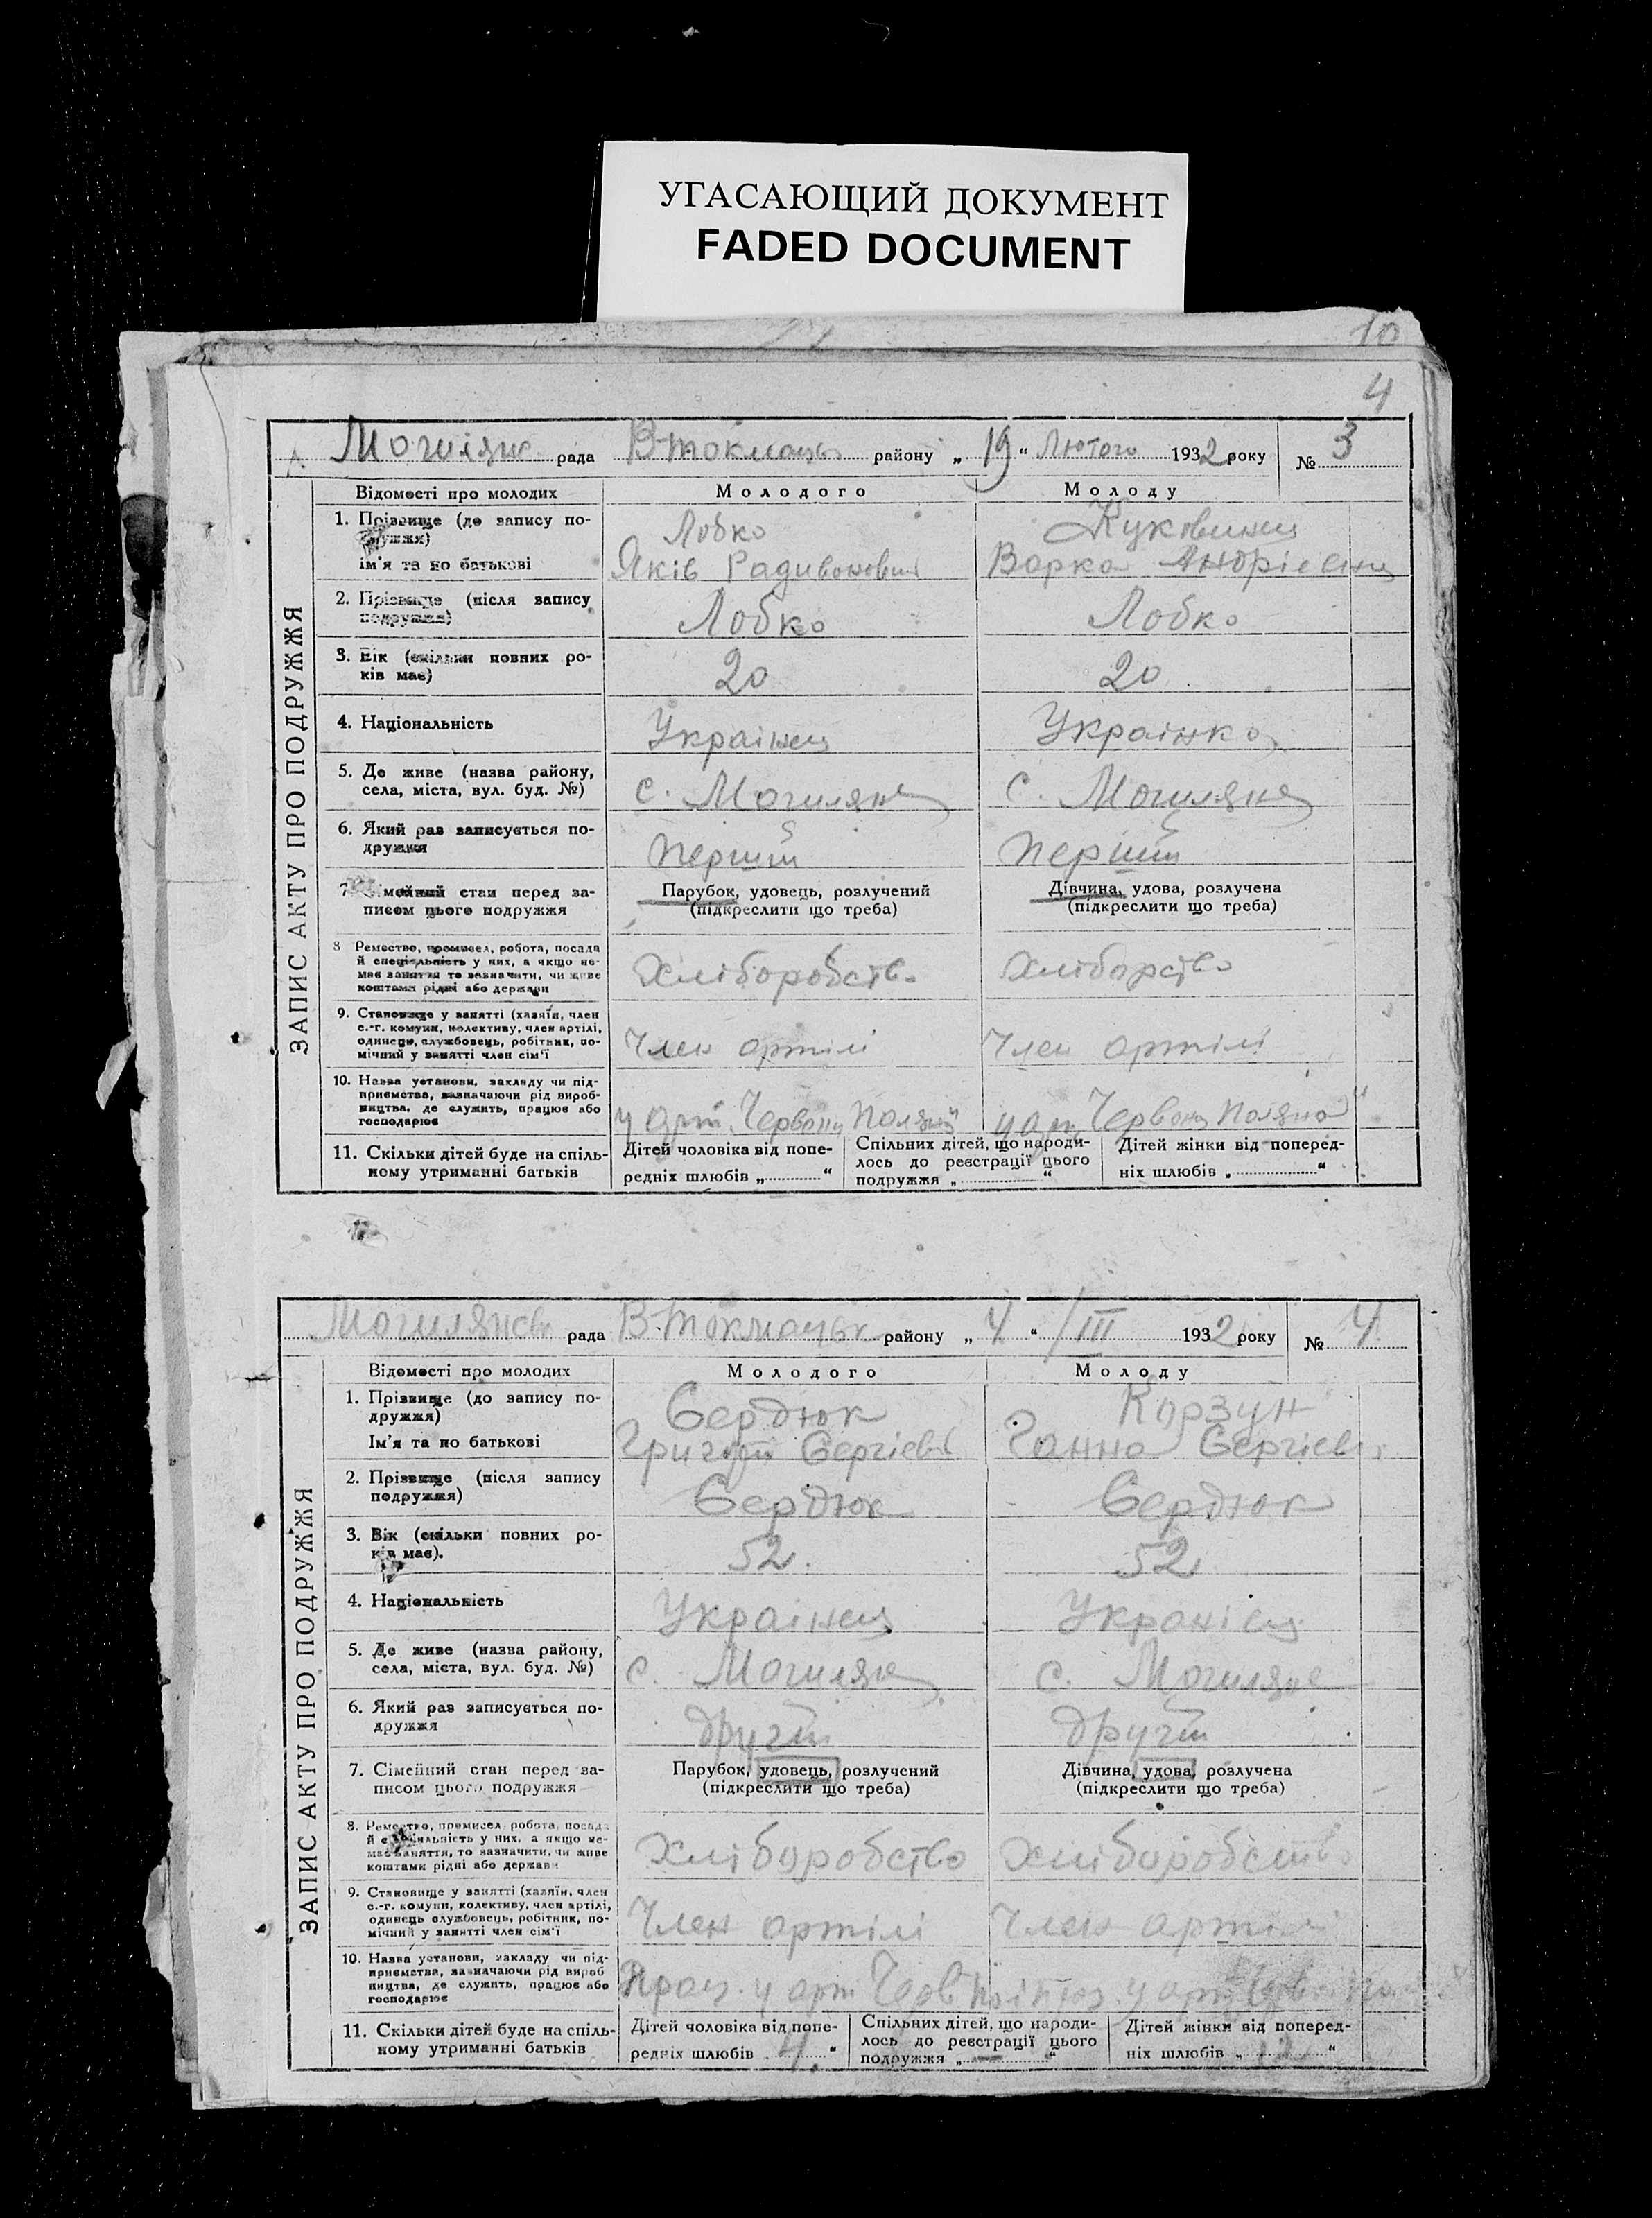 УГАСАЮЩИЙ ДОКУМЕНТ
FADED DOCUMENT
10
4
рада В-Токмацьк району „ 19 “ Лютого 1932 року № 3
ЗАПИС АКТУ ПРО ПОДРУЖЖЯ
Відомості про молодих Молодого Молоду
1. Прізвище (до запису по-
дружжя) Лобко
ім'я та по батькові Яків Радивонович Варка Андріевна
2. Прізвище (після запису
подружжя) Лобко Лобко
3. Вік (скільки повних ро-
ків має) 20 20
4. Національність Українец Українка
5. Де живе (назва району,
села, міста, вул. буд. №) с. Могиляне с. Могиляне
6. Який раз записується по-
дружжя перший перший
7. Сімейний стан перед за- Парубок, удовець, розлучений Дівчина, удова, розлучена
писом цього подружжя (підкреслити що треба) (підкреслити що треба)
8 Ремество, промисел, робота, посада
й спеціяльність у них, а якщо не-
має заняття то зазначити, чи живе
коштами рідні або держави Хліборобство Хліборство
9. Становище у занятті (хазяїн, член
с.-г. комуни, колективу, член артілі,
одинець, службовець, робітник, по-
мічний у занятті член сім'ї Член артілі Член артілі
10. Назва установи, закладу чи під-
приємства, зазначаючи рід вироб-
ництва, де служить, працює або
господарює у арт. Червона Поляна у арт. Червона Поляна
11. Скільки дітей буде на спіль- Дітей чоловіка від попе- Спільних дітей, що народи- Дітей жінки від поперед-
ному утриманні батьків редніх шлюбів „ “ лось до реєстрації цього ніх шлюбів „ “
подружжя „ “
рада В-Токмацьк району „ 4 “ /III 1932 року № 4
ЗАПИС АКТУ ПРО ПОДРУЖЖЯ
Відомості про молодих Молодого Молоду
1. Прізвище (до запису по-
дружжя) Сердюк Корзун
Ім'я та по батькові Григорій Сергієв Ганна Сергієв
2. Прізвище (після запису
подружжя) Сердюк Сердюк
3. Вік (скільки повних ро-
ків має). 52. 52
4. Національність Українец
5. Де живе (назва району,
села, міста, вул. буд. №) с. Могиляне с. Могиляне
6. Який раз записується по-
дружжя другий другий
7. Сімейний стан перед за- Парубок, удовець, розлучений Дівчина, удова, розлучена
писом цього подружжя (підкреслити що треба) (підкреслити що треба)
8. Ремество, промисел робота, посада
й спеціяльність у них, а якщо не-
має заняття, то зазначити, чи живе
коштами рідні або держави Хліборобство Хліборобство
9. Становище у занятті (хазяїн, член
с.-г. комуни, колективу, член артілі,
одинець службовець, робітник, по-
мічний у занятті член сім'ї Член артілі Член артілі
10. Назва установи, закладу чи під-
приємства, зазначаючи рід вироб
ництва, де служить, працює або
господарює Прац. у арт Черв у арт
11. Скільки дітей буде на спіль- Дітей чоловіка від попе- Спільних дітей, що народи- Дітей жінки від поперед-
ному утриманні батьків редніх шлюбів 4. “ лось до реєстрації цього ніх шлюбів „ “
подружжя „ — “